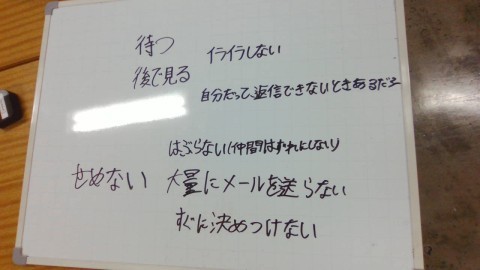 待つ イライラしない
後で見る
自分だって、返信できないときあるだろ
はぶらない(仲間はずれにしない)
せめない 大量にメールを送らない
すぐに決めつけない